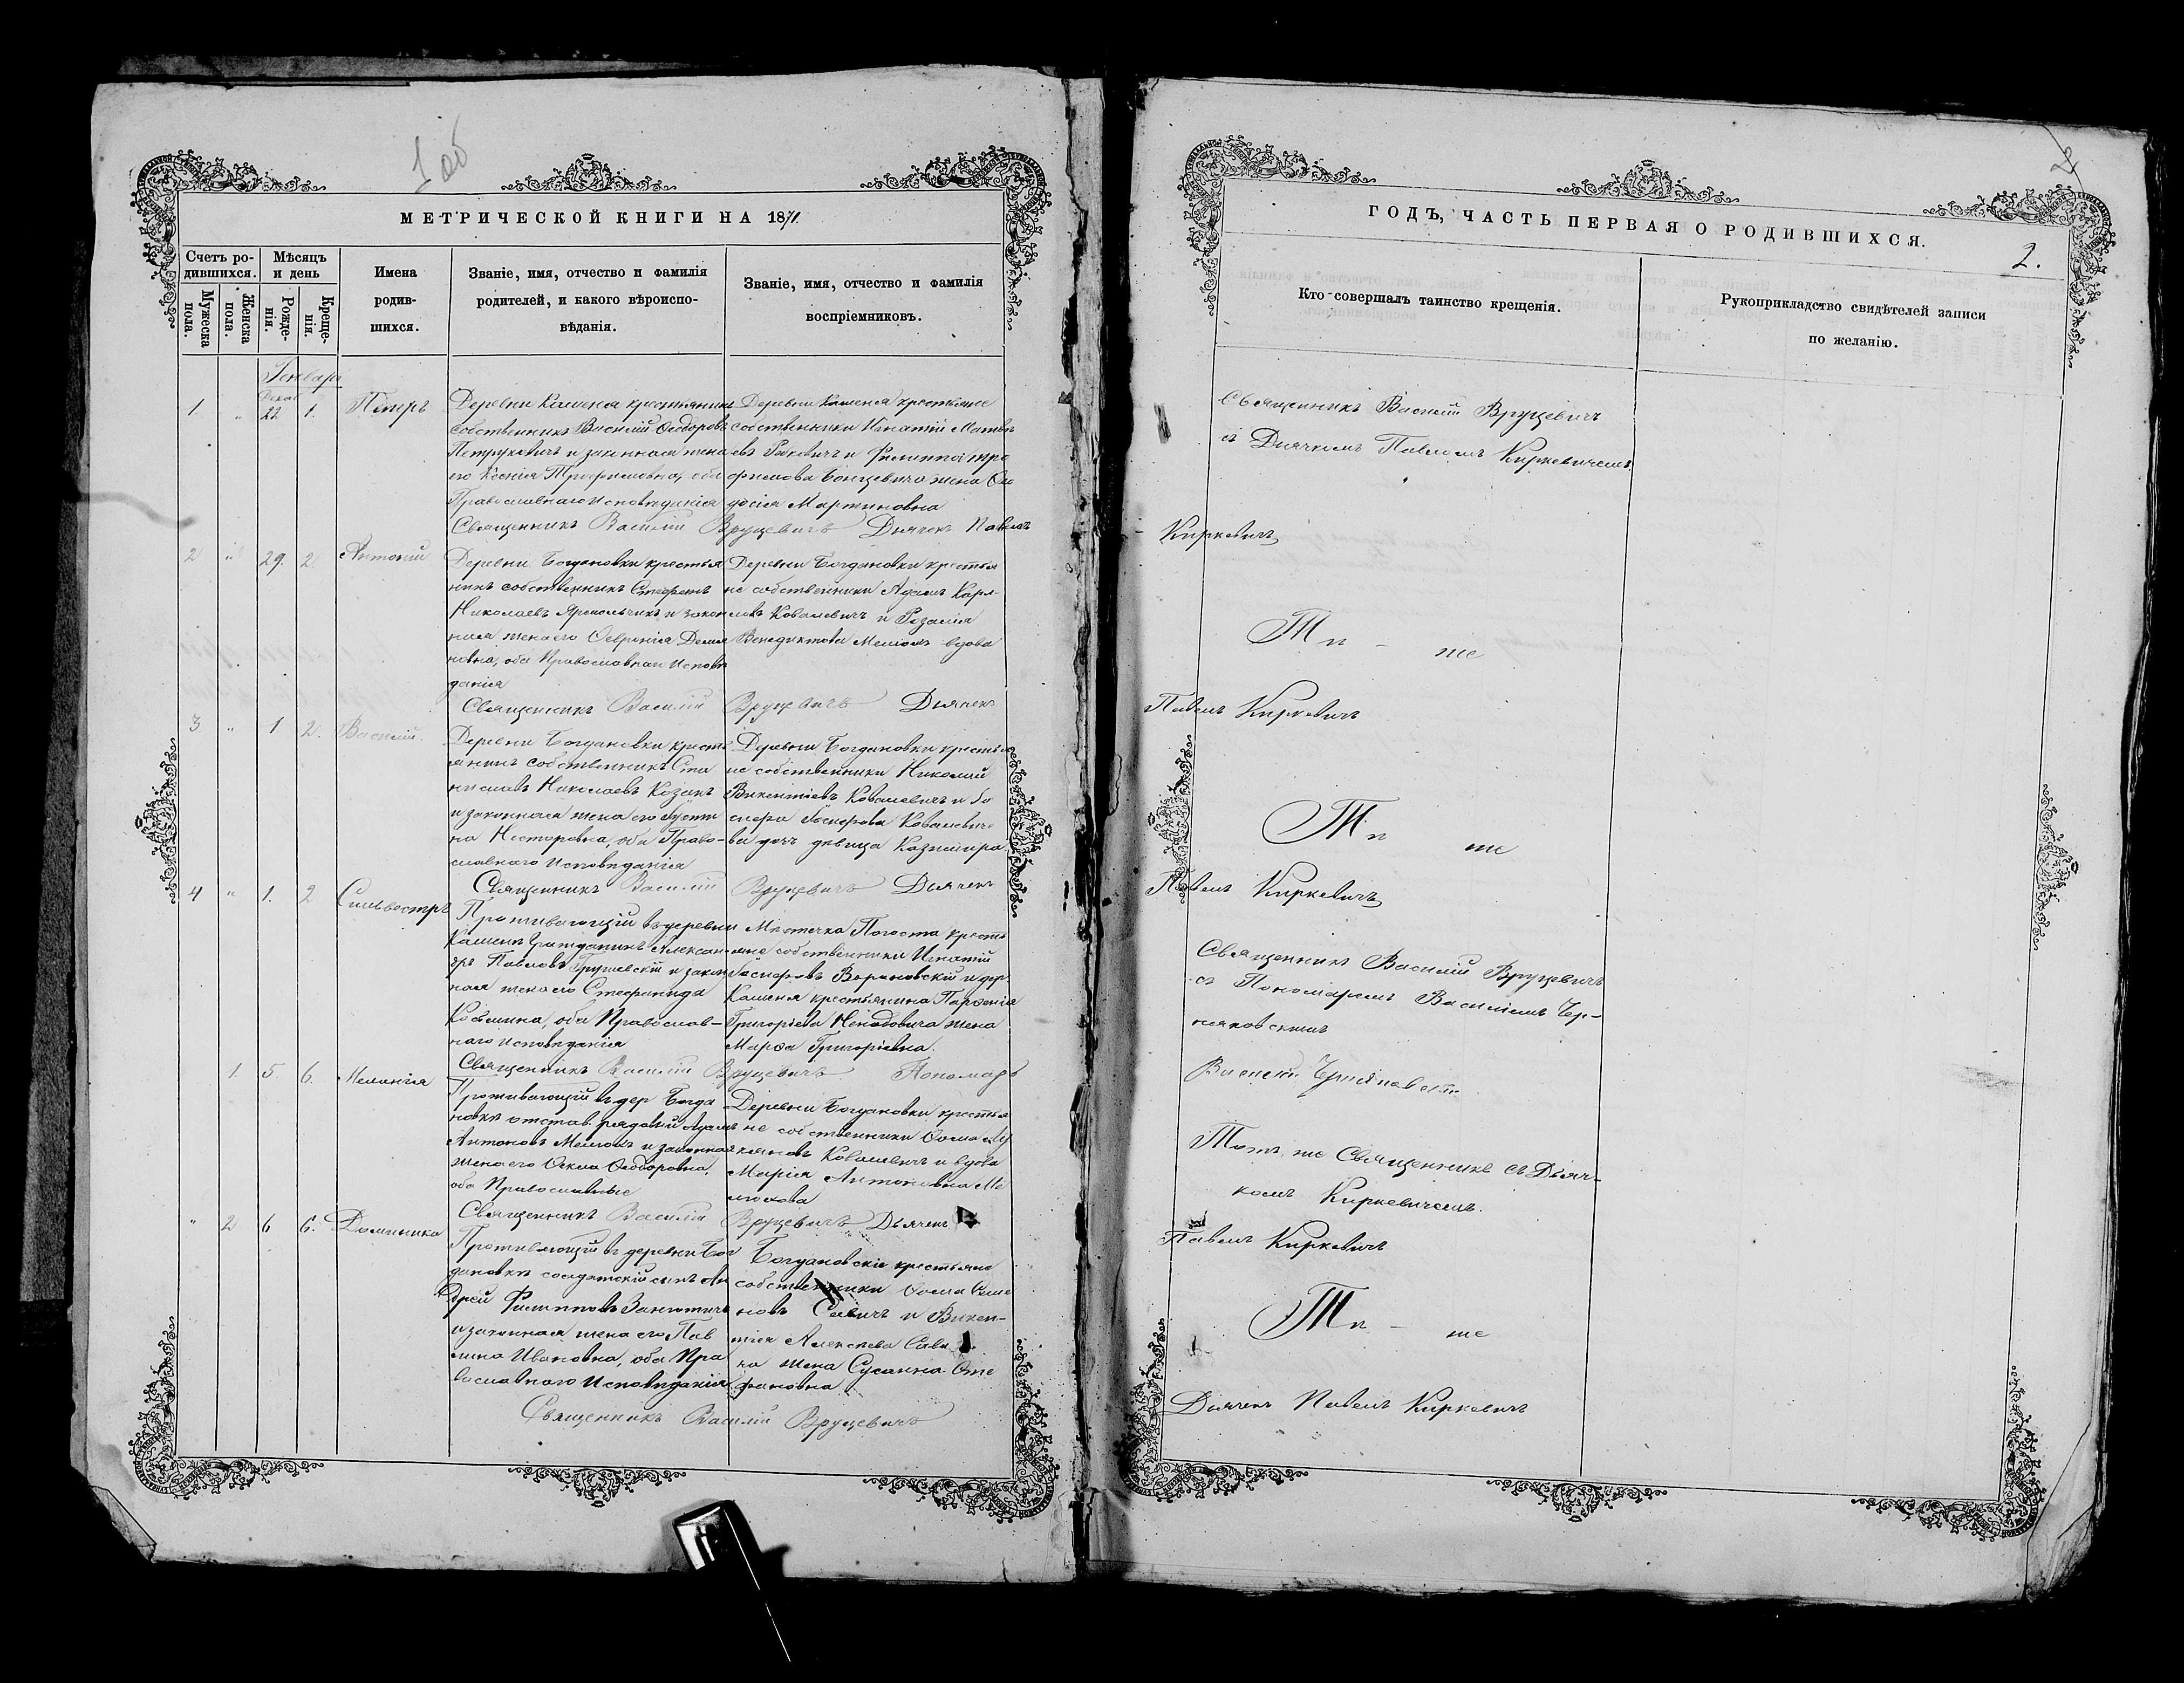 1 об
МЕТРИЧЕСКОЙ КНИГИ НА 1871
Счетъ ро-
дившихся.
Мѣсяцъ
и день
Мужеска
пола.
Женска
пола.
Рожде-
нія.
Креще-
нія.
Имена
родив-
шихся.
Званіе, имя, отчество и фамилія
родителей, и какого вѣроиспо-
вѣданія.
Званіе, имя, отчество и фамилія
воспріемниковъ.
Генварь
1. " Дека 22 1. Петеръ
Деревни Каменя крестьянинъ
собственникъ Василій Ѳеодоровъ
Петруковичъ и законная жена
его Ксенія Трифимовна, оба
Православнаго Исповѣданія
Деревни Каменя крестьяне
собственники Игнатій Матвѣ
евъ и Филиппа Тро
фимова жена Ѳео
досія Мартиновна
Священникъ Василій Вруцевичъ Дьячекъ Павелъ
2 " 29. 2 Антоній
Деревни Богдановки крестья
нинъ собственникъ Стефанъ
Николаевъ и закон
ная жена его Февронія Демья
новна, оба Православнаг Исповѣ
данія
Деревни Богдановки крестья
не собственники Адамъ Кар-
ловъ Ковалевичъ и Розалія
Венедиктова вдова
Священникъ Василій Вруцевичъ Дьячекъ
3 " 1 2. Василій.
Деревни Богдановки кресть
янинъ собственникъ Ста
ниславъ Николаевъ Козакъ
и законная жена его Іусти
на Несторовна, оба Право-
славнаго Исповѣданія
Деревни Богдановки крестья
не собственники Николай
Викентіевъ Ковалевичъ и Іо
сифа Іосифова Ковалевич-
ва дочь дѣвица Казимира
Священникъ Василій Вруцевичъ Дьячекъ
4 " 1. 2 Сильвестръ
Проживающій въ деревни
Каменѣ Гражданинъ Алексан
дръ Павловъ Грушевскій и закон
ная жена его Стефанида
Косьмина, оба Православ-
наго Исповѣданія
Мѣстечка Погоста кресть
яне собственники Игнатій
Іосифовъ Вороновскій и дер.
Каменя крестьянина Парѳенія
Григоріева жена
Марѳа Григоріевна.
Священникъ Василій Вруцевичъ Пономарь
1. 5 6. Меланія
Проживающій въ дер Богда
новкѣ отстав. рядовый Адамъ
Антоновъ и законная
жена его Ѳекла Ѳеодоровна,
оба Православные
Деревни Богдановки крестья
не собственники Ѳома Лу
кяновъ Ковалевичъ и вдова
Марія Антоновна
Священникъ Василій Вруцевичъ Дьячекъ
" 2 6 6. Доминика
Проживающій въ деревни Бог
дановкѣ солдатскій сынъ Ан
дрей Филипповъ
и законная жена его Пав
лина Ивановна, оба Пра
вославнаго Исповѣданія
Богдановскіе крестьяне
собственники Ѳома
новъ Савичъ и Викен-
тія Алексѣева Сави
ча жена Сусанна Сте
фановна
Священникъ Василій Вруцевичъ
2
ГОДЪ, ЧАСТЬ ПЕРВАЯ О РОДИВШИХСЯ.
2.
Кто совершалъ таинство крещенія.
Рукоприкладство свидѣтелей записи
по желанію.
Священникъ Василій Вруцевичъ
съ Дьячкомъ Павломъ Киркевичемъ.
Киркевичъ
Тѣ - же
Павелъ Киркевичъ
Тѣ же
Павелъ Киркевичъ
Священникъ Василій Вруцевичъ
съ Пономаремъ Василіемъ Чер-
няковскимъ
Василій Черняковскій
Тотъ же Священникъ съ Дьяч-
комъ Киркевичемъ.
Павелъ Киркевичъ
Тѣ - же
Дьячекъ Павелъ Киркевичъ